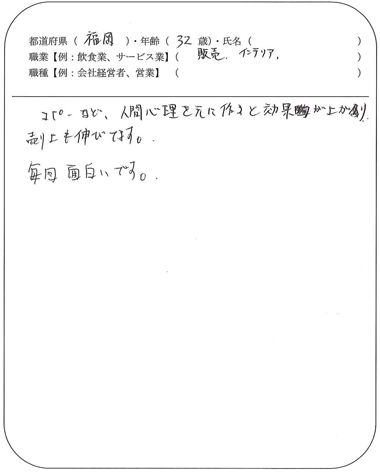 都道府県（ 福岡 ）・年齢（ 32 歳）・氏名（ ）
職業【例：飲食業、サービス業】（ 販売、インテリア、 ）
職種【例：会社経営者、営業】（ ）
コピーなど、人間心理を元に作ると効果が上がり、
売り上も伸びてます。
毎回面白いです。